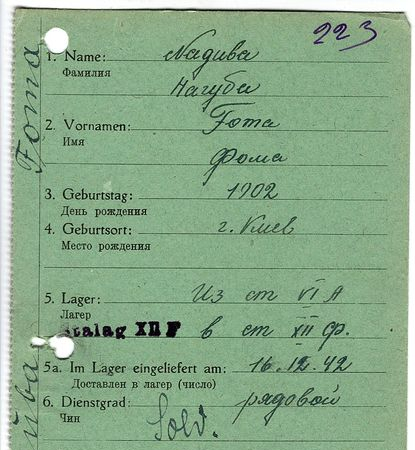 223
1. Name: Naduba
Фамилия Нагуба
2. Vornamen: Foma
Имя Фома
3. Geburtstag: 1902
День рождения
4. Geburtsort: г. Киев
Место рождения
5. Lager: Из ст VI A
Лагер
Stalag XII F в ст XII ф.
5a. Im Lager eingeliefert am: 16.12.42
Доставлен в лагер (число)
6. Dienstgrad: рядовой
Чин Sold.
Foma